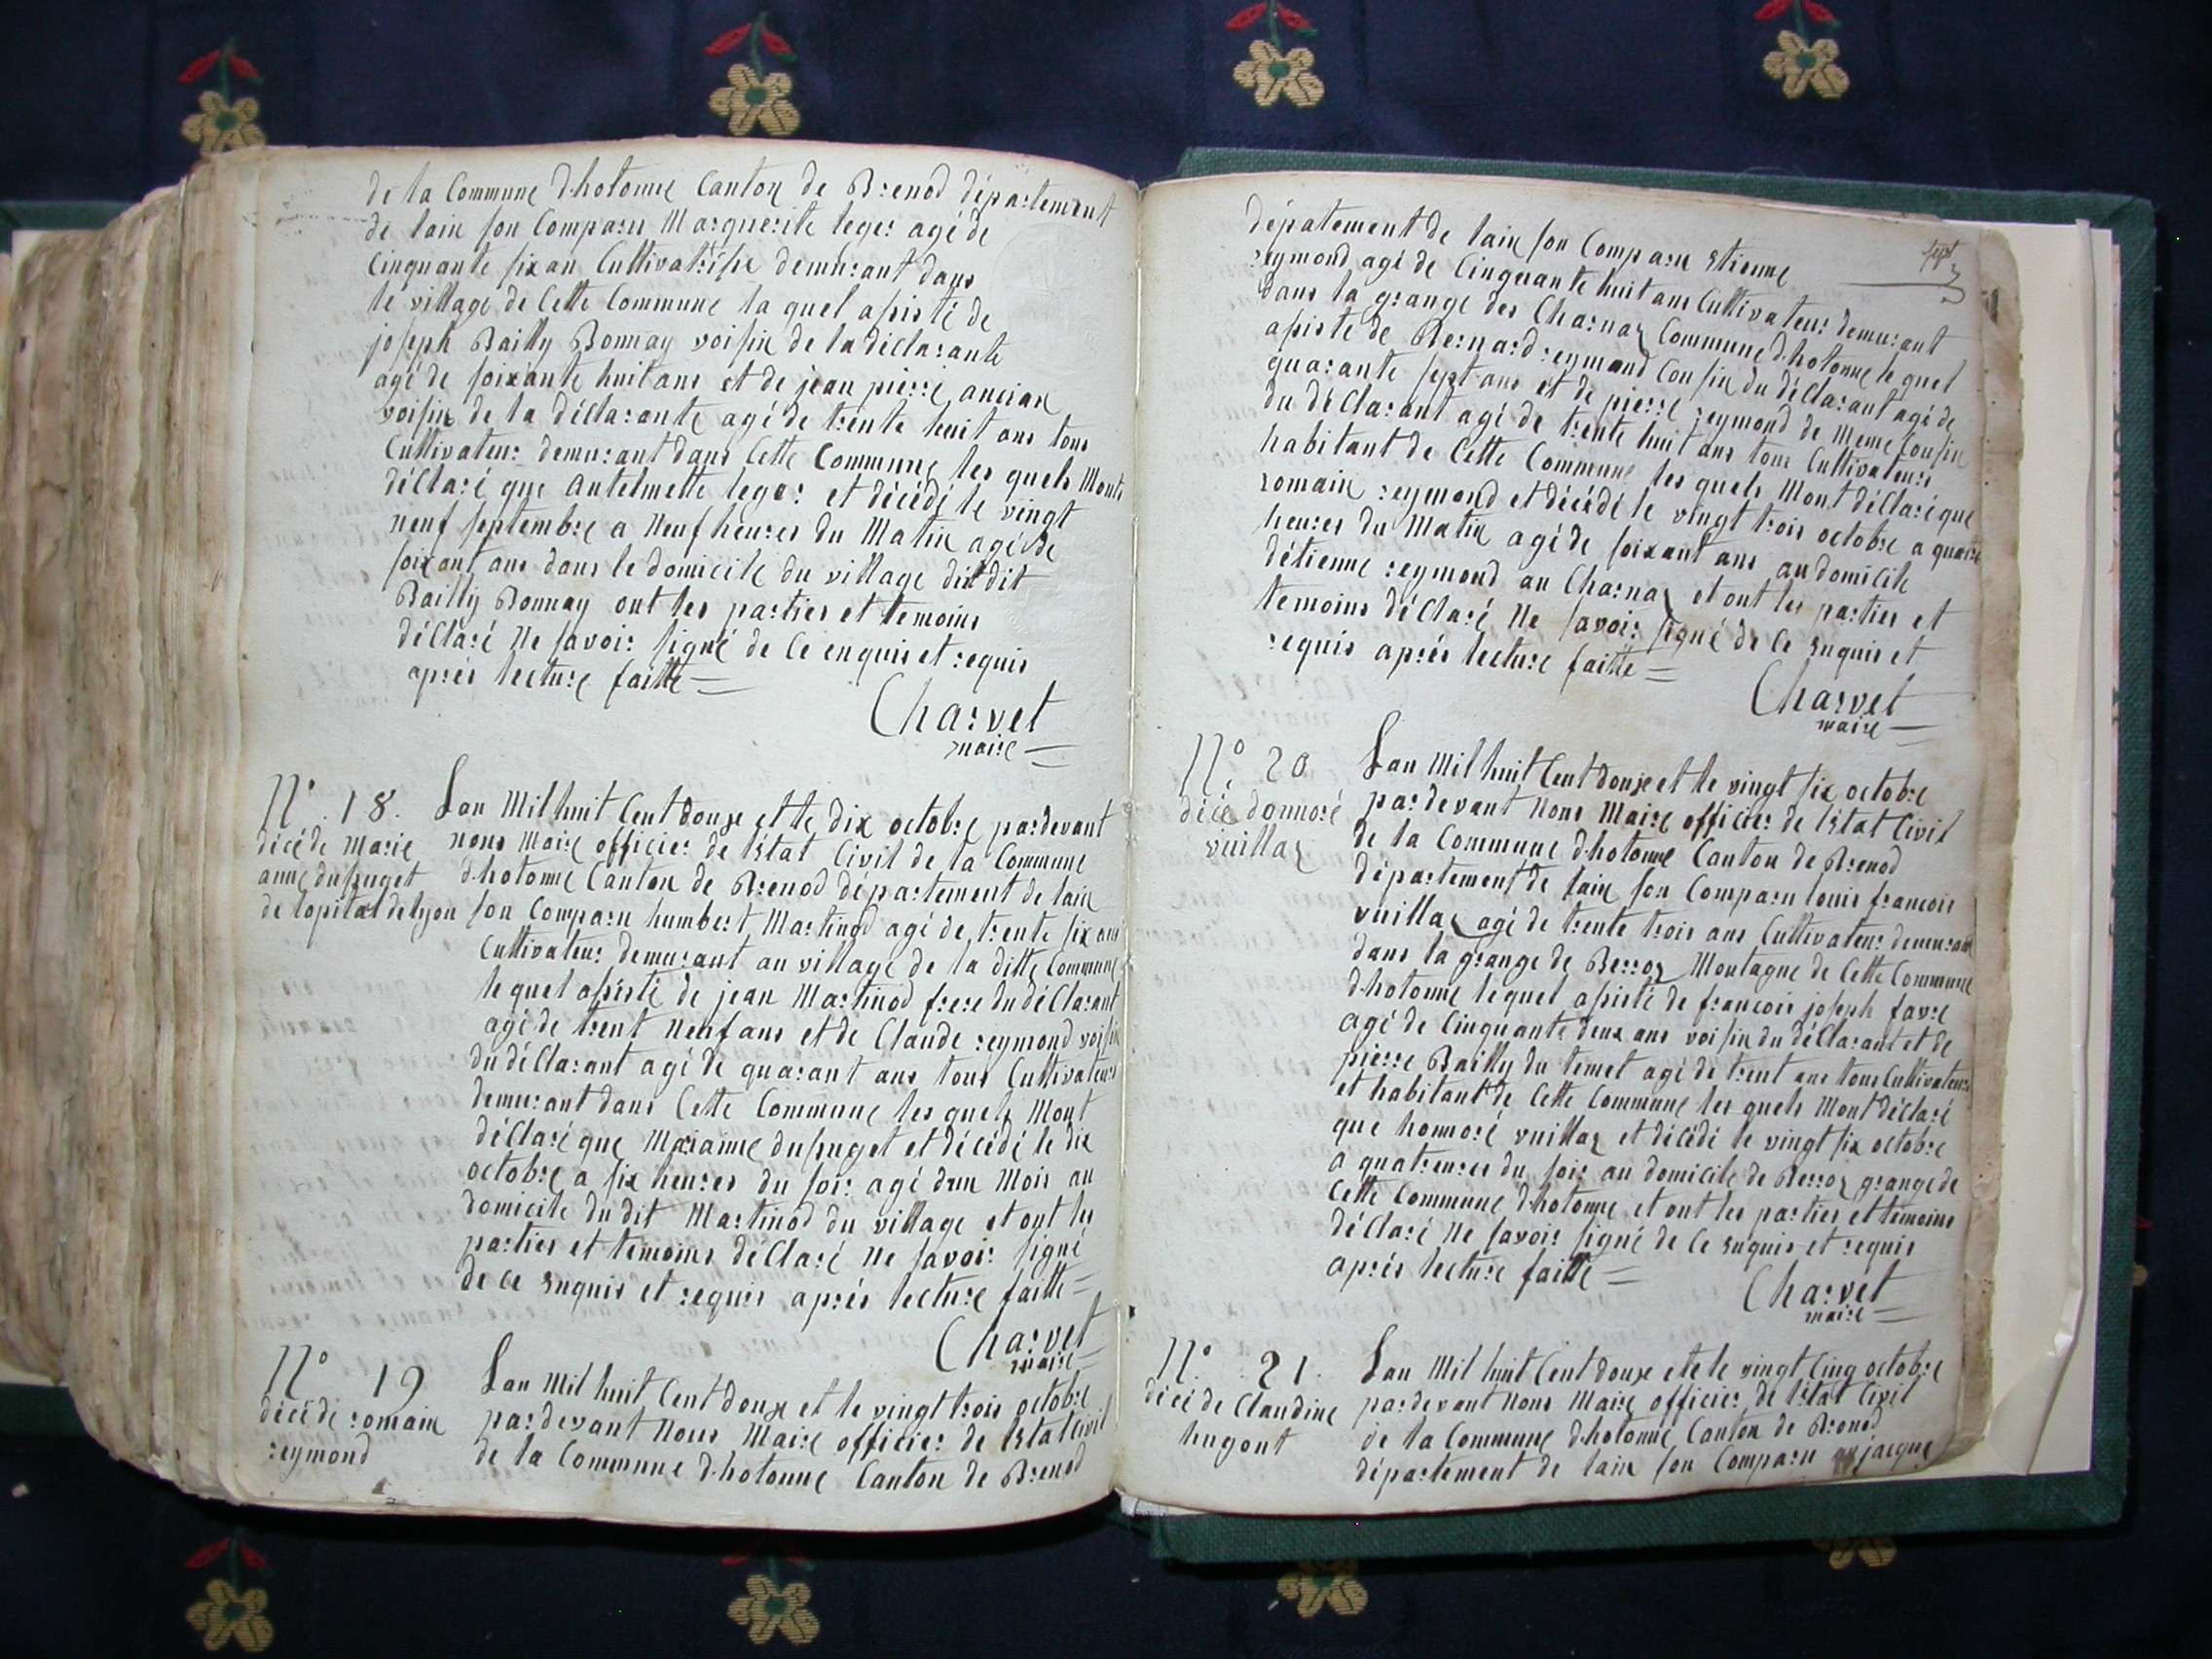 de la Commune d.hotonne Canton de Brenod département
de lain son Comparu Marguerite leger agé de
Cinquante six an Cultivatrisse demurant dans
le village de Cette Commune la quel asisté de
joseph Bailly Bonnay voisin de la déclarante
agé de soixante huit ans et de jean pierre ancian
voisin de la déclarante agé de trente huit ans tous
Cultivateur demurant dans Cette Commune les quels Mont
déclaré que antelmette leger et décédé le vingt
neuf septembre a Neuf heures du Matin agé de
soixant ans dans le domicile du village dudit
Bailly Bonnay ont les parties et temoins
déclaré Ne savoir signé de Ce enquis et requis
aprés lecture faitte =
Charvet
maire =
N° 18.
décé de marie
anne dupuget
de lopital de lyon
Lan Mil huit Cent douze et le dix octobre pardevant
nous Maire officier de létat Civil de la Commune
d.hotonne Canton de Brenod département de lain
son Comparu humbert Martinod agé de trente six ans
Cultivateur demurant au village de la ditte Commune
lequel asisté de jean Martinod frere du déClarant
agé de trent Neuf ans et de Claude reymond voisin
du déClarant agé de quarant ans tous Cultivateurs
demurant dans Cette Commune les quels Mont
déClaré que Marianne dupuget et décédé le dix
octobre a six heures du soir agé dun Mois au
domicile du dit Martinod du village et ont les
parties et temoins déClaré Ne savoir signé
de Ce enquis et requis aprés lecture faitte =
Charvet
maire =
N° 19
décé de romain
reymond
Lan Mil huit Cent douze et le vingt trois octobre
pardevant Nous Maire officier de létat Civil
de la Commune d.hotonne Canton de Brenod
sept
dépatement de lain son Comparu etienne
reymond agé de Cinquante huit ans Cultivateur demurant
dans la grange des Charnaz Commune d.hotonne le quel
asiste de Bernard reymond Cousin du déClarant agé de
quarante sept ans et de pierre reymond de Meme Cousin
du déClarant agé de trente huit ans tous Cultivateurs
habitant de Cette Commune les quels Mont déClaré que
romain reymond et décédé le vingt trois octobre a quatre
heures du Matin agé de soixant ans au domicile
détienne reymond au Charnaz et ont les parties et
temoins déClaré Ne savoir signé de Ce enquis et
requis aprés lecture faitte =
Charvet
maire =
N° 20
décé donnoré
vuillaz
Lan Mil huit Cent douze et le vingt six octobre
pardevant Nous Maire officier de létat Civil
de la Commune d.hotonne Canton de Brenod
département de lain son Comparu louis francois
vuillaz agé de trente trois ans Cultivateur demurant
dans la grange de Berroz Montagne de Cette Commune
d.hotonne lequel asisté de francois joseph favre
agé de Cinquante deux ans voisin du déClarant et de
pierre Bailly du temet agé de trent ans tous Cultivateurs
et habitant de Cette Commune les quels Mont déClaré
que honnoré vuillaz et décédé le vingt six octobre
a quatreures du soir au domicile de Berroz grange de
Cette Commune d.hotonne et ont les parties et témoins
déClaré Ne savoir signé de Ce enquis et requis
aprés lecture faitte =
Charvet
maire =
N° 21.
décé de Claudine
hugont
Lan Mil huit Cent douze et le vingt Cinq octobre
pardevant Nous Maire officier de létat Civil
de la Commune d.hotonne Canton de Brenod
département de lain son Comparu jacque